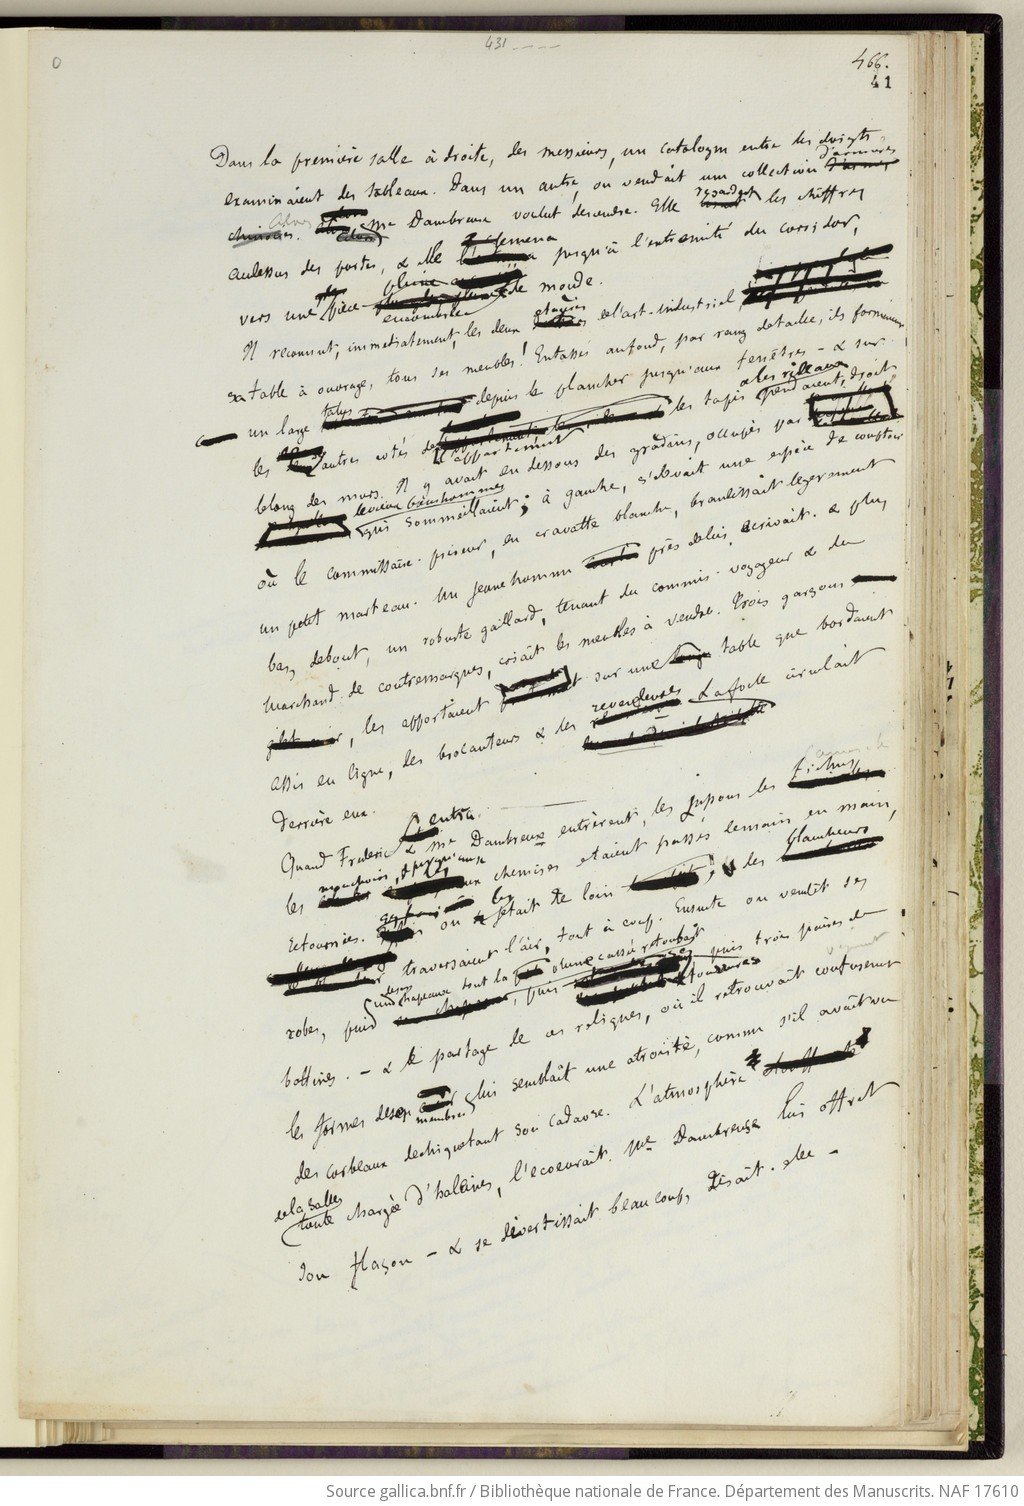 431
0
466.
41
Dans la première salle à droite, des messieurs, un catalogue entre les doigts
d'armures
examinaient des tableaux. Dans une autre, on vendait une collection
chinoises. Me Dambreuse voulut descendre. Elle regardait les chiffres
audessus des portes, & elle l'emmena jusqu'à l'extrémité du corridor,
vers une pièce pleine de monde.
encombrée
Il reconnut, immédiatement, les deux étagères de l'art-industriel,
sa table à ouvrage, tous ses meubles! Entassés au fond, par rang de taille, ils formaient
un large talus depuis le plancher jusqu'aux fenêtres - & sur
les autres côtés de l'appartement les tapis & les rideaux pendaient, droit
le long des murs. Il y avait en dessous des gradins, occupés par
de vieux bonshommes qui sommeillaient; à gauche, s'élevait une espèce de comptoir
où le commissaire-priseur, en cravatte blanche, brandissait légèrement
un petit marteau. Un jeune homme près de lui, écrivait. & plus
bas, debout, un robuste gaillard, tenant du commis-voyageur & du
marchand de contremarques, criait les meubles à vendre. Trois garçons
les apportaient sur une table que bordaient
assis en ligne, des brocanteurs & des revendeuses. La foule circulait
derrière eux.
Quand Frederic entra & Me Dambreuse entrèrent, les jupons les fichus
les mouchoirs, & jusqu'aux chemises étaient passés de main en main,
retournés. on les jetait de loin & des blancheurs
traversaient l'air, tout à coup. Ensuite on vendit ses
robes, puis un de ses chapeaux dont la plume cassée retombait, puis ses fourrures puis trois paires de
bottines. - & le partage de ces reliques, où il retrouvait confusément
les formes de ses membres lui semblait une atrocité, comme s'il avait vu
des corbeaux dechiquetant son cadavre. L'atmosphère
de la salle
toute chargée d'haleines, l'écoeurait. Me Dambreuse lui offrit
son flacon - & se divertissait beaucoup, disait-elle -
Source gallica.bnf.fr / Bibliothèque nationale de France. Département des Manuscrits. NAF 17610